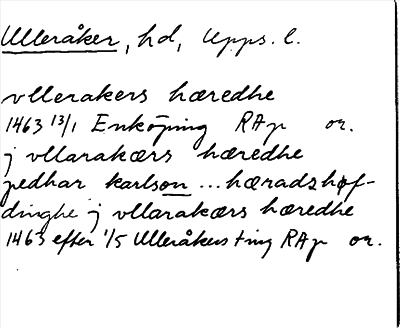 Ulleråker, hd, Upps. l.
vllerakers hæredhe
1463 13/1 Enköping RAp or.
j vllarakærs hæredhe
pedhar karlson ... hæradzhøf-
dinghe j vllarakærs hæredhe
1463 efter 1/5 Ulleråkers ting RAp or.